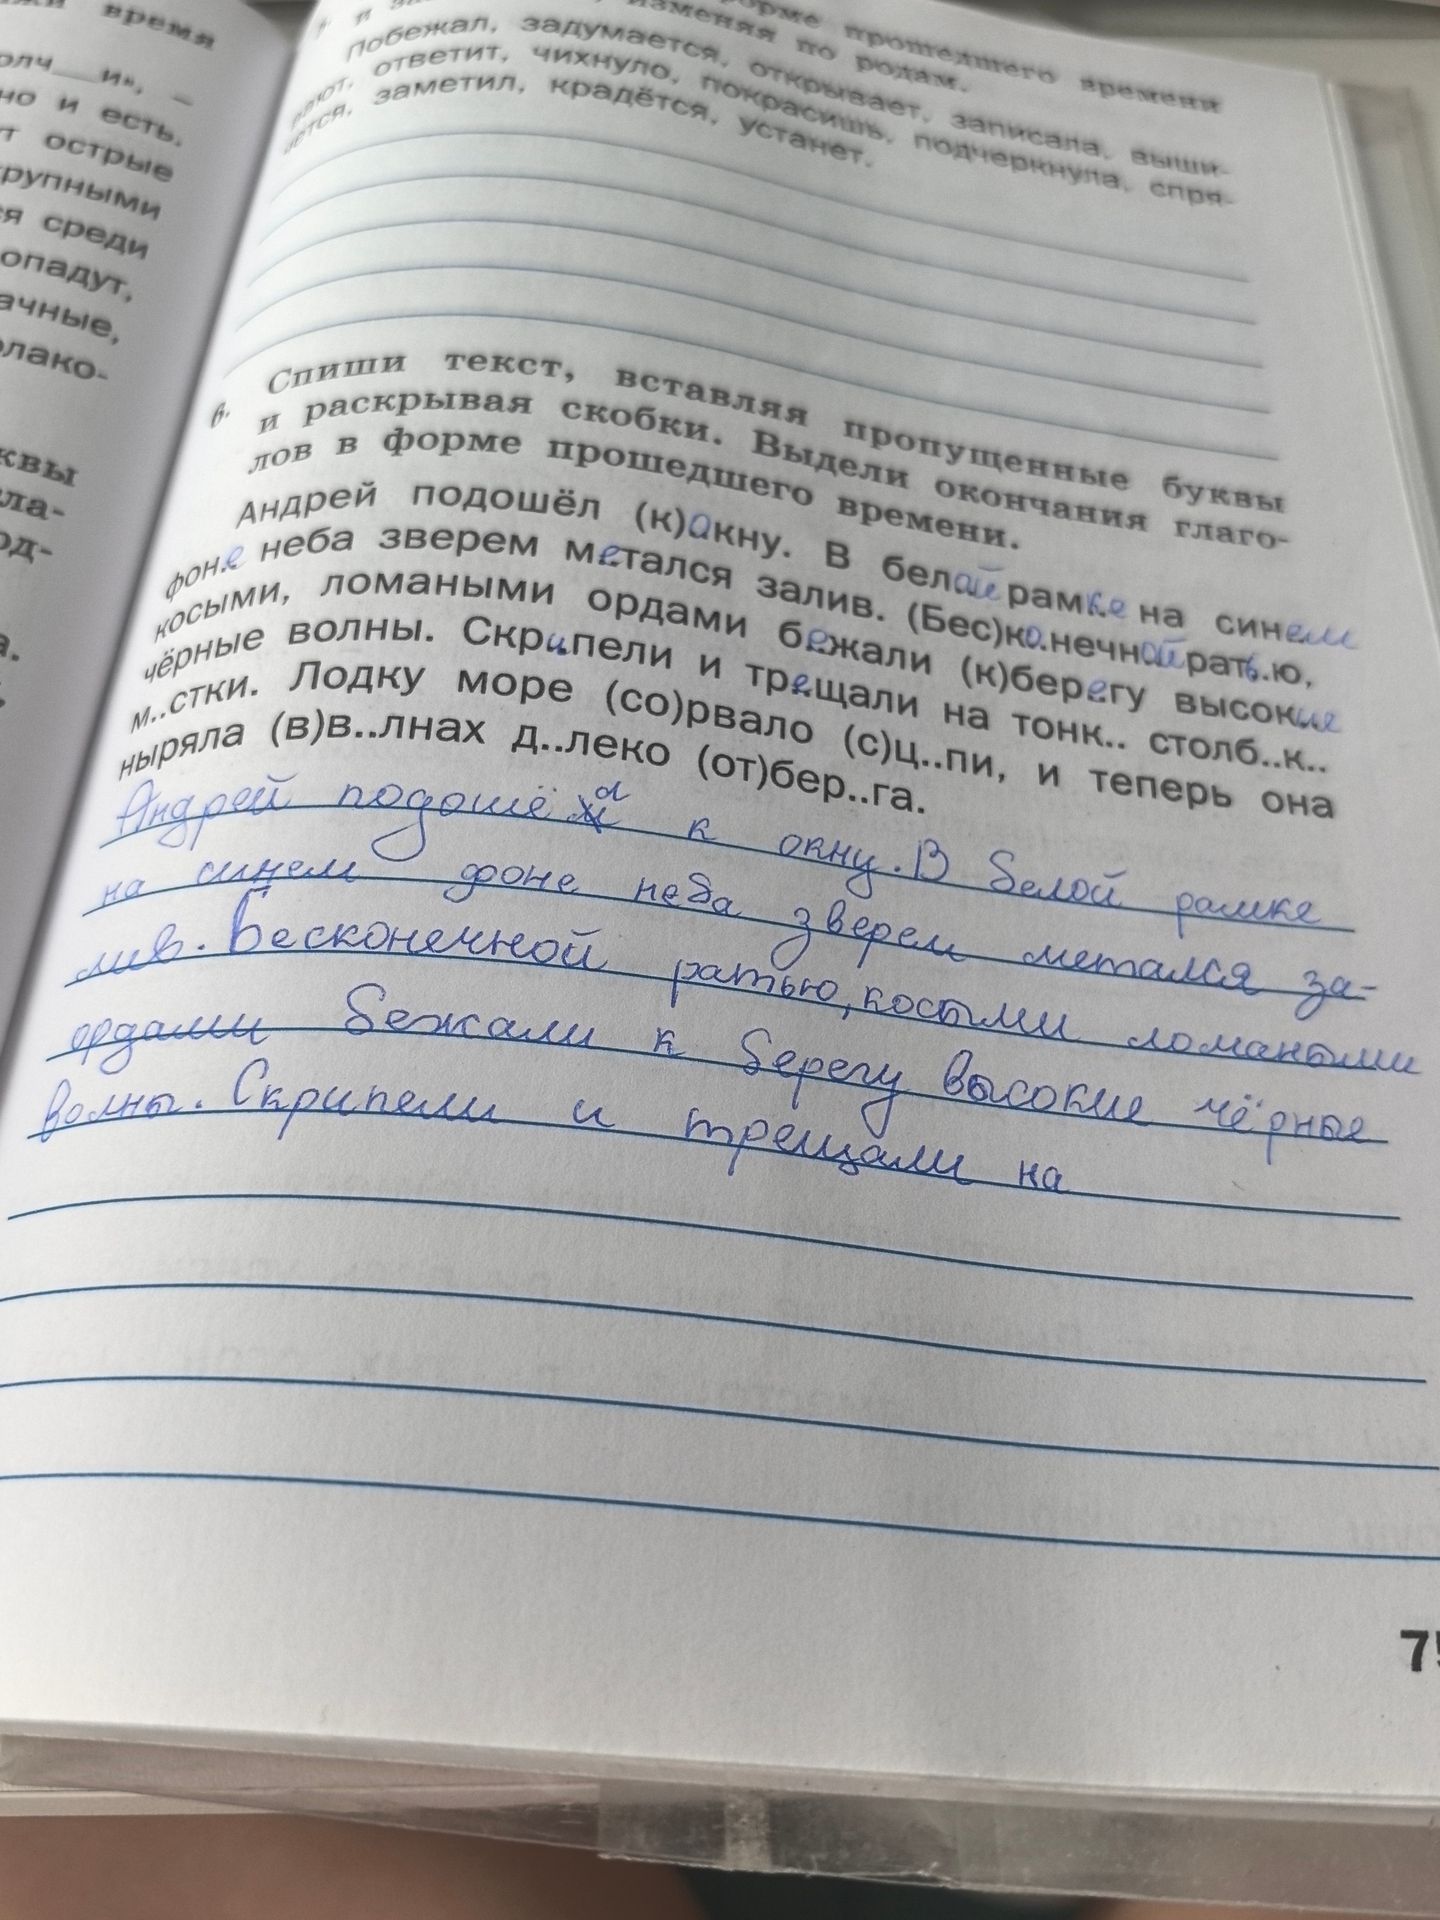 жи время
олч__и»,
но и есть.
т острые
крупными
ся среди
опадут,
ачные,
олако-
квы
ла-
од-
а.
и за изменяя по родам.
форме прошедшего времени
Побежал, задумается, открывает, записала, выши-
вают, ответит, чихнуло, покрасишь, подчеркнула, спря-
чется, заметил, крадётся, устанет.
6. Спиши текст, вставляя пропущенные буквы
и раскрывая скобки. Выдели окончания глаго-
лов в форме прошедшего времени.
Андрей подошёл (к)окну. В белой рамке на синем
фоне неба зверем метался залив. (Бес)конечной ратью,
косыми, ломаными ордами бежали (к)берегу высокие
чёрные волны. Скрипели и трещали на тонк.. столб..к..
м..стки. Лодку море (со)рвало (с)ц..пи, и теперь она
ныряла (в)в..лнах д..леко (от)бер..га.
Андрей подошёл к окну. В белой рамке
на синем фоне неба зверем метался за-
лив. Бесконечной ратью, косыми ломаными
ордами бежали к берегу высокие чёрные
волны. Скрипели и трещали на
75